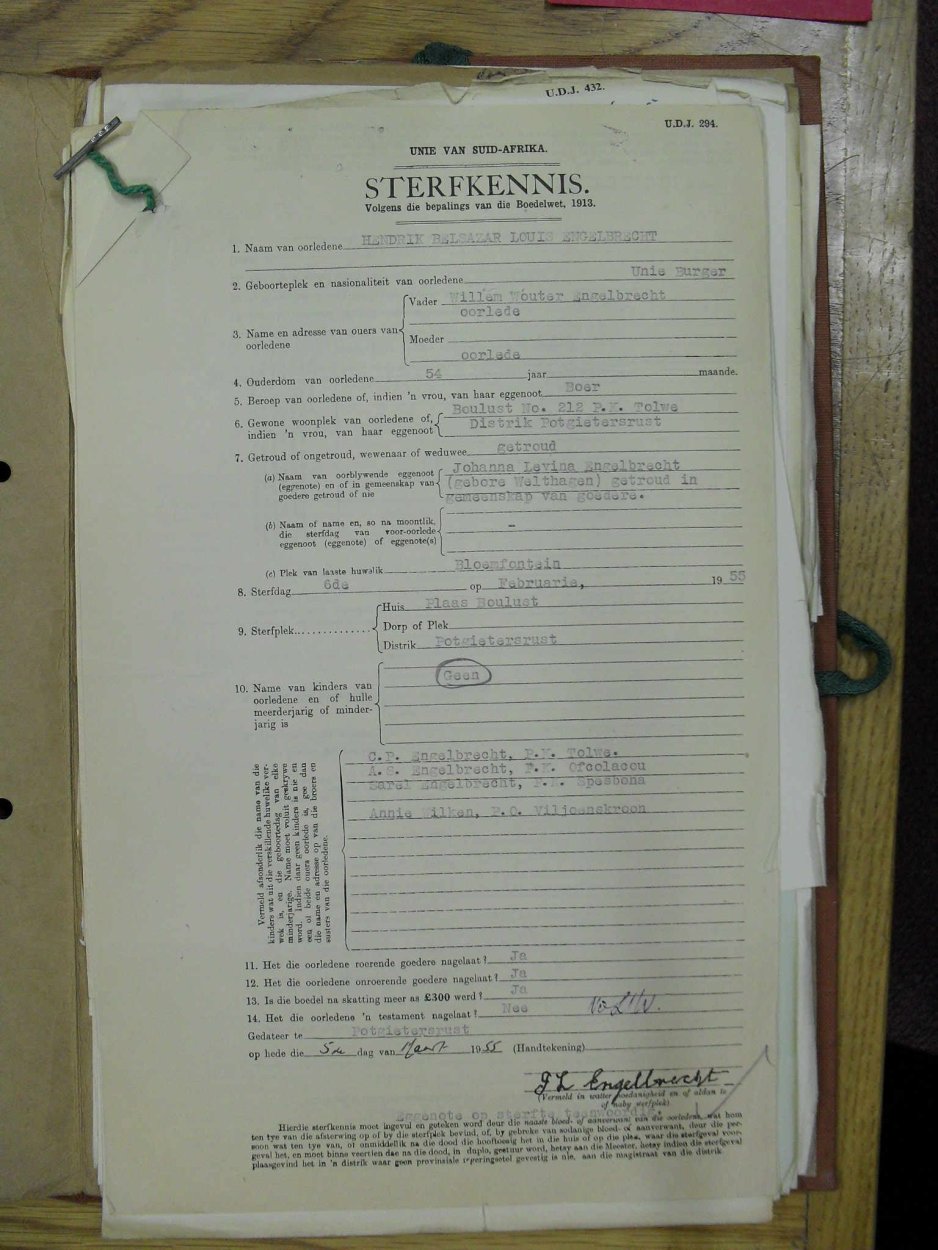 U.D.J. 432.
U.D.J. 294.
UNIE VAN SUID-AFRIKA.
STERFKENNIS.
Volgens die bepalings van die Boedelwet, 1913.
1. Naam van oorledene HENDRIK BELSAZAR LOUIS ENGELBRECHT
2. Geboorteplek en nasionaliteit van oorledene Unie Burger
3. Name en adresse van ouers van oorledene
Vader Willem Wouter Engelbrecht
oorlede
Moeder
oorlede
4. Ouderdom van oorledene 54 jaar maande.
5. Beroep van oorledene of, indien 'n vrou, van haar eggenoot Boer
6. Gewone woonplek van oorledene of, Boulust No. 212 P.K. Tolwe
indien 'n vrou, van haar eggenoot Distrik Potgietersrust
7. Getroud of ongetroud, wewenaar of weduwee getroud
(a) Naam van oorblywende eggenoot Johanna Levina Engelbrecht
(eggenote) en of in gemeenskap van (gebore Welthagen) getroud in
goedere getroud of nie gemeenskap van goedere.
(b) Naam of name en, so na moontlik,
die sterfdag van voor-oorlede -
eggenoot (eggenote) of eggenote(s)
(c) Plek van laaste huwelik Bloemfontein
8. Sterfdag 6de op Februarie, 19 55
9. Sterfplek
Huis Plaas Boulust
Dorp of Plek
Distrik Potgietersrust
10. Name van kinders van
oorledene en of hulle
meerderjarig of minder-
jarig is
Geen
Vermeld afsonderlik die name van die
kinders wat uit die verskillende huwelike ver-
wek is, en die geboortedag van elke
minderjarige. Name moet voluit geskrywe
word. Indien daar geen kinders is nie en
een of beide ouers oorlede is, gee dan
die name en adresse op van die broers en
susters van die oorledene.
C.P. Engelbrecht, P.K. Tolwe.
A.S. Engelbrecht, P.K. Ofcolacou
Sarel Engelbrecht, P.K. Spesbona
Annie Wilken, P.O. Viljoenskroon
11. Het die oorledene roerende goedere nagelaat? Ja
12. Het die oorledene onroerende goedere nagelaat? Ja
13. Is die boedel na skatting meer as £300 werd? Ja
14. Het die oorledene 'n testament nagelaat? Nee
Gedateer te Potgietersrust
op hede die 5de dag van Maart 1955 (Handtekening)
J L Engelbrecht
(Vermeld in watter hoedanigheid en of aldan te
of naby sterfplek)
Eggenote op sterfte teenwoordig.
Hierdie sterfkennis moet ingevul en geteken word deur die naaste bloed- of aanverwant van die oorledene, wat hom
ten tye van die afsterwing op of by die sterfplek bevind, of, by gebreke van sodanige bloed- of aanverwant, deur die per-
soon wat ten tye van, of onmiddellik na die dood die hoofbesig het in die huis of op die plek, waar die sterfgeval voor-
geval het, en moet binne veertien dae na die dood, in duplo, gestuur word, hetsy aan die Meester, hetsy indien die sterfgeval
plaasgevind het in 'n distrik waar geen provinsiale regeringsetel gevestig is nie, aan die magistraat van die distrik